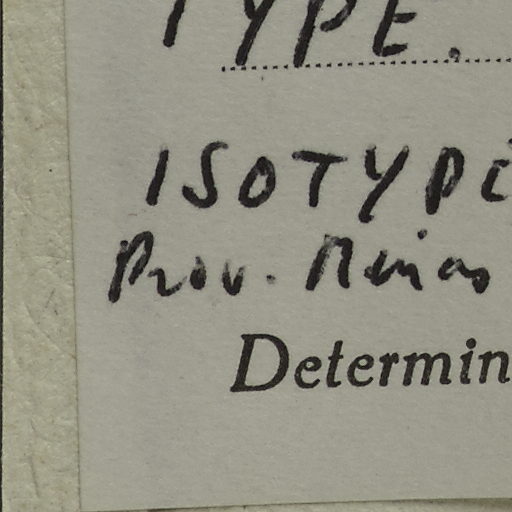 TYPE.
ISOTYPE
Prov. Minas
Determin